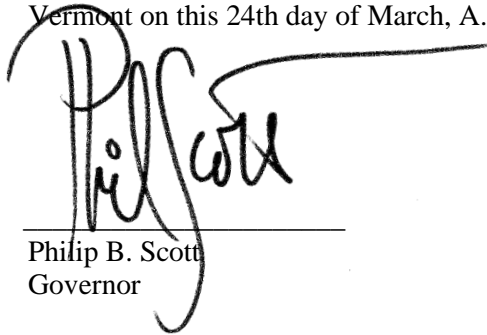 Vermont on this 24th day of March, A.
Phil Scott
Philip B. Scott
Governor